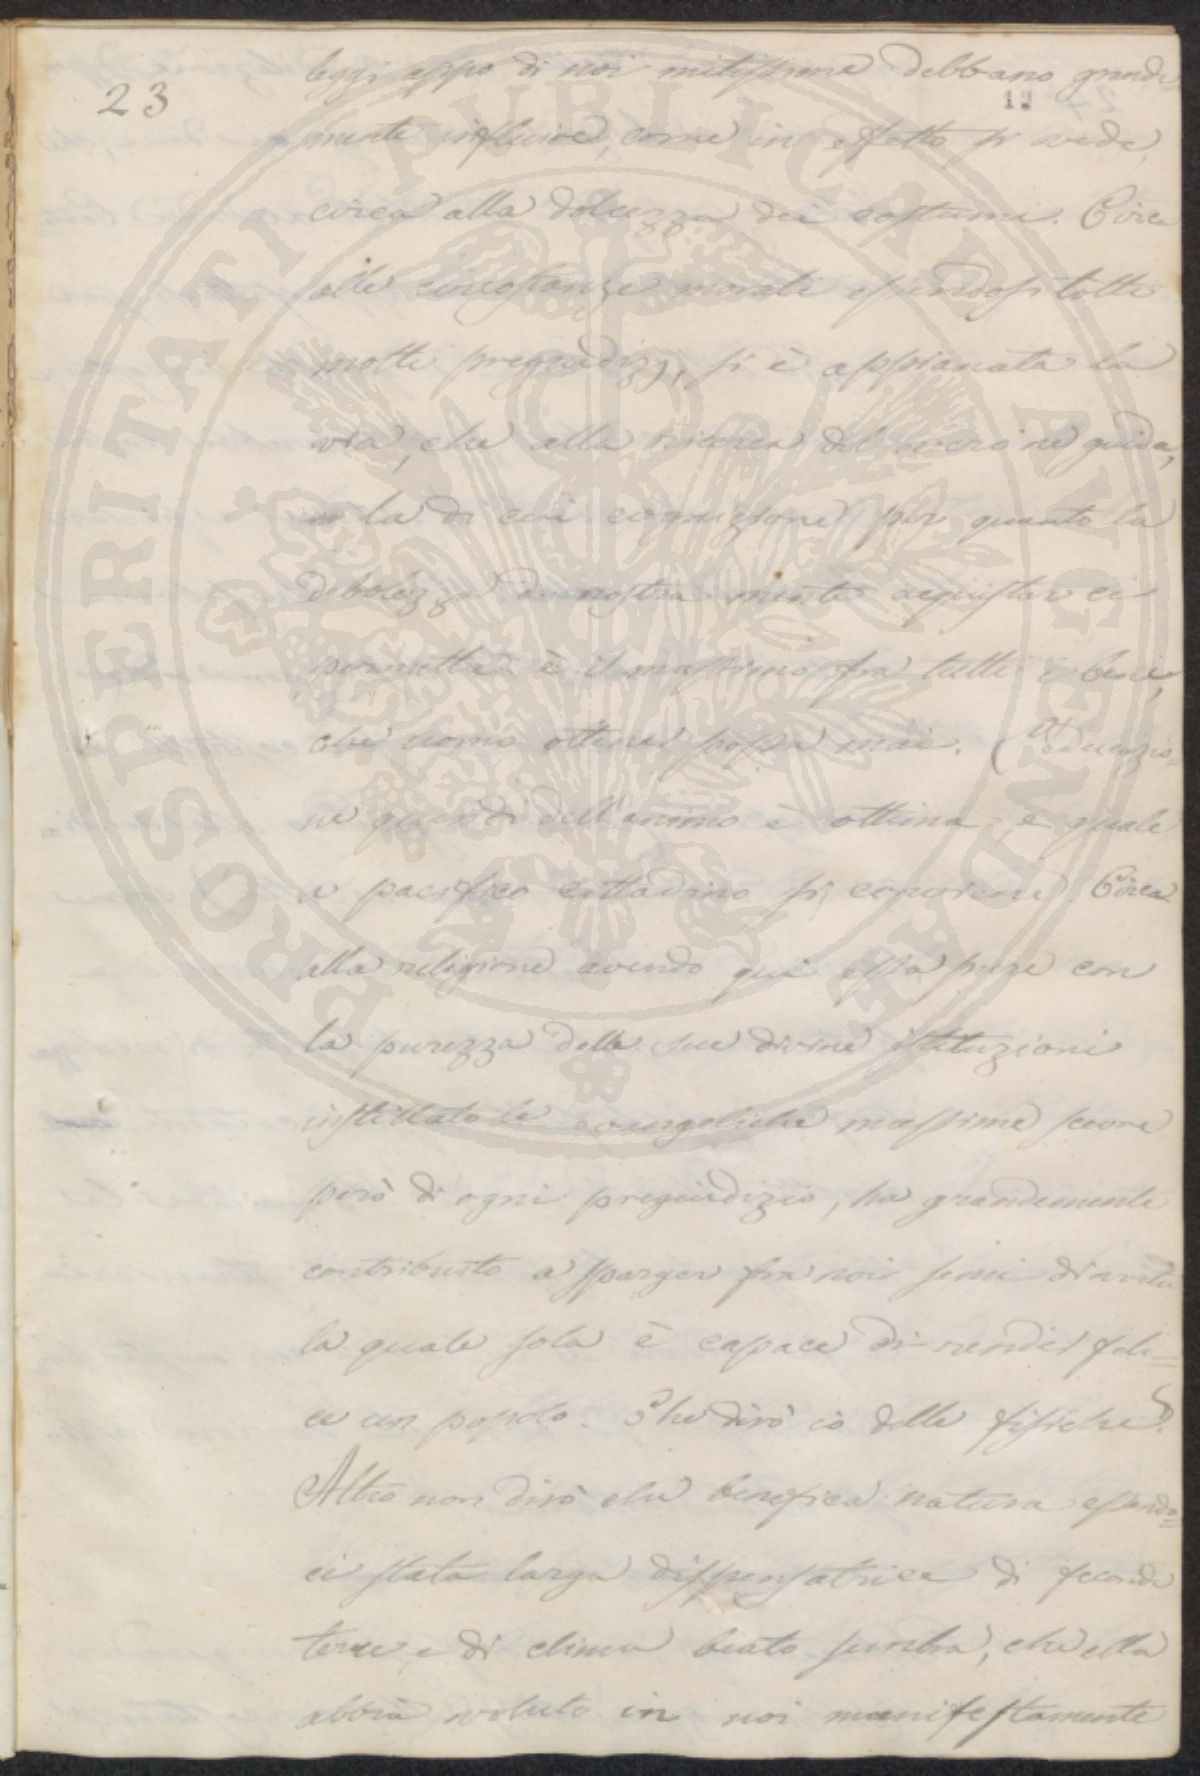 23
leggi appo di noi mitissime debbano grande=
12
mente influire, come in effetto si vede,
circa alla dolcezza dei costumi. Circa
alle circostanze morali essendosi tolti
molti pregiudizj, si è appianata la
via, che alla ricerca del vero ne guida,
e la di cui cognizione per quanto la
debolezza di nostra mente acquistar ci
permetta è il massimo fra tutti i beni,
che uomo ottener possa mai. (L'educazio=
ne quindi dell'animo è ottima, e quale
a pacifico cittadino si conviene. Circa
alla religione avendo qui essa pure con
la purezza delle sue divine istituzioni
instillato le evangeliche massime scevre
però di ogni pregiudizio, ha grandemente
contribuito a sparger fra noi semi di virtù
la quale sola è capace di render feli=
ce un popolo. Che dirò io delle fisiche?
Altro non dirò che benefica natura essendo=
ci stata larga dispensatrice di feconde
terre, e di clima beato sembra, che ella
abbia voluto in noi manifestamente
PROSPERITATI PUBLICAE AUGENDAE